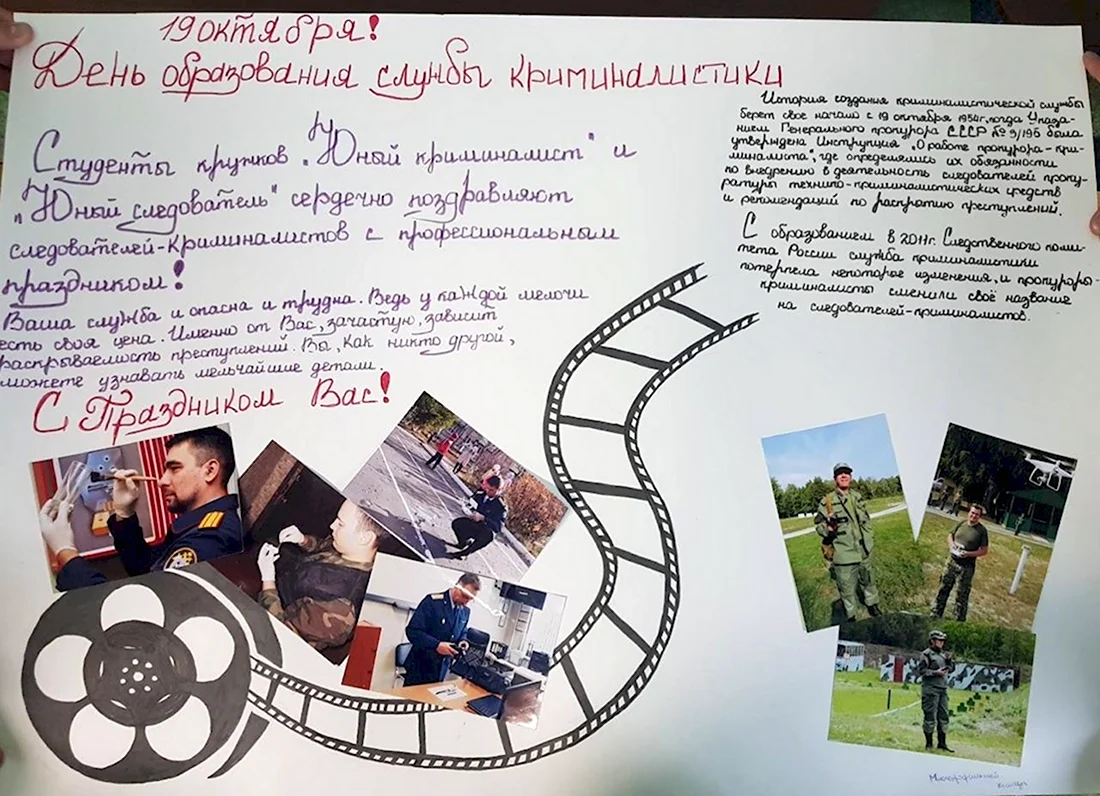 19 октября!
День образования службы криминалистики
Студенты кружков „Юный криминалист" и
„Юный следователь" сердечно поздравляют
следователей-криминалистов с профессиональным
праздником!
Ваша служба и опасна и трудна. Ведь у каждой мелочи
есть своя цена. Именно от Вас, зачастую, зависит
раскрываемость преступлений. Вы, как никто другой,
можете узнавать мельчайшие детали.
С Праздником Вас!
История создания криминалистической службы
берет свое начало с 19 октября 1954г, когда Указа-
нием Генерального прокурора СССР № 3/195 была
утверждена Инструкция „О работе прокурора-кри-
миналиста", где определялись их обязанности
по внедрению в деятельность следователей проку-
ратуры технико-криминалистических средств
и рекомендаций по раскрытию преступлений.
С образованием в 2011г. Следственного коми-
тета России служба криминалистики
потерпела некоторое изменения, и прокуроры-
криминалисты сменили своё название
на следователей-криминалистов.